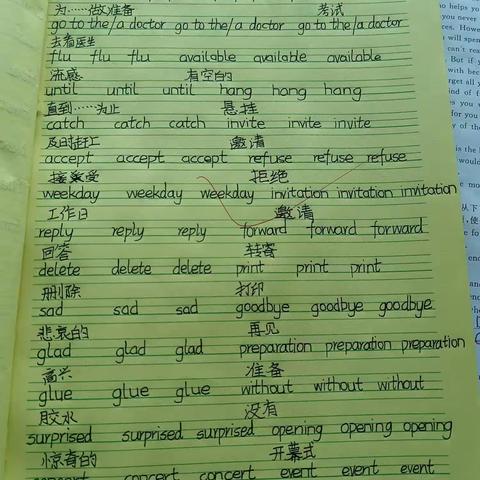 为……做准备 考试
go to the/a doctor go to the/a doctor go to the/a doctor
去看医生
flu flu flu available available available
流感 有空的
until until until hang hang hang
直到……为止 悬挂
catch catch catch invite invite invite
及时赶上 邀请
accept accept accept refuse refuse refuse
接受 拒绝
weekday weekday weekday invitation invitation invitation
工作日 邀请
reply reply reply forward forward forward
回答 转寄
delete delete delete print print print
删除 打印
sad sad sad goodbye goodbye goodbye
悲哀的 再见
glad glad glad preparation preparation preparation
高兴 准备
glue glue glue without without without
胶水 没有
surprised surprised surprised opening opening opening
惊奇的 开幕式
concert concert concert event event event